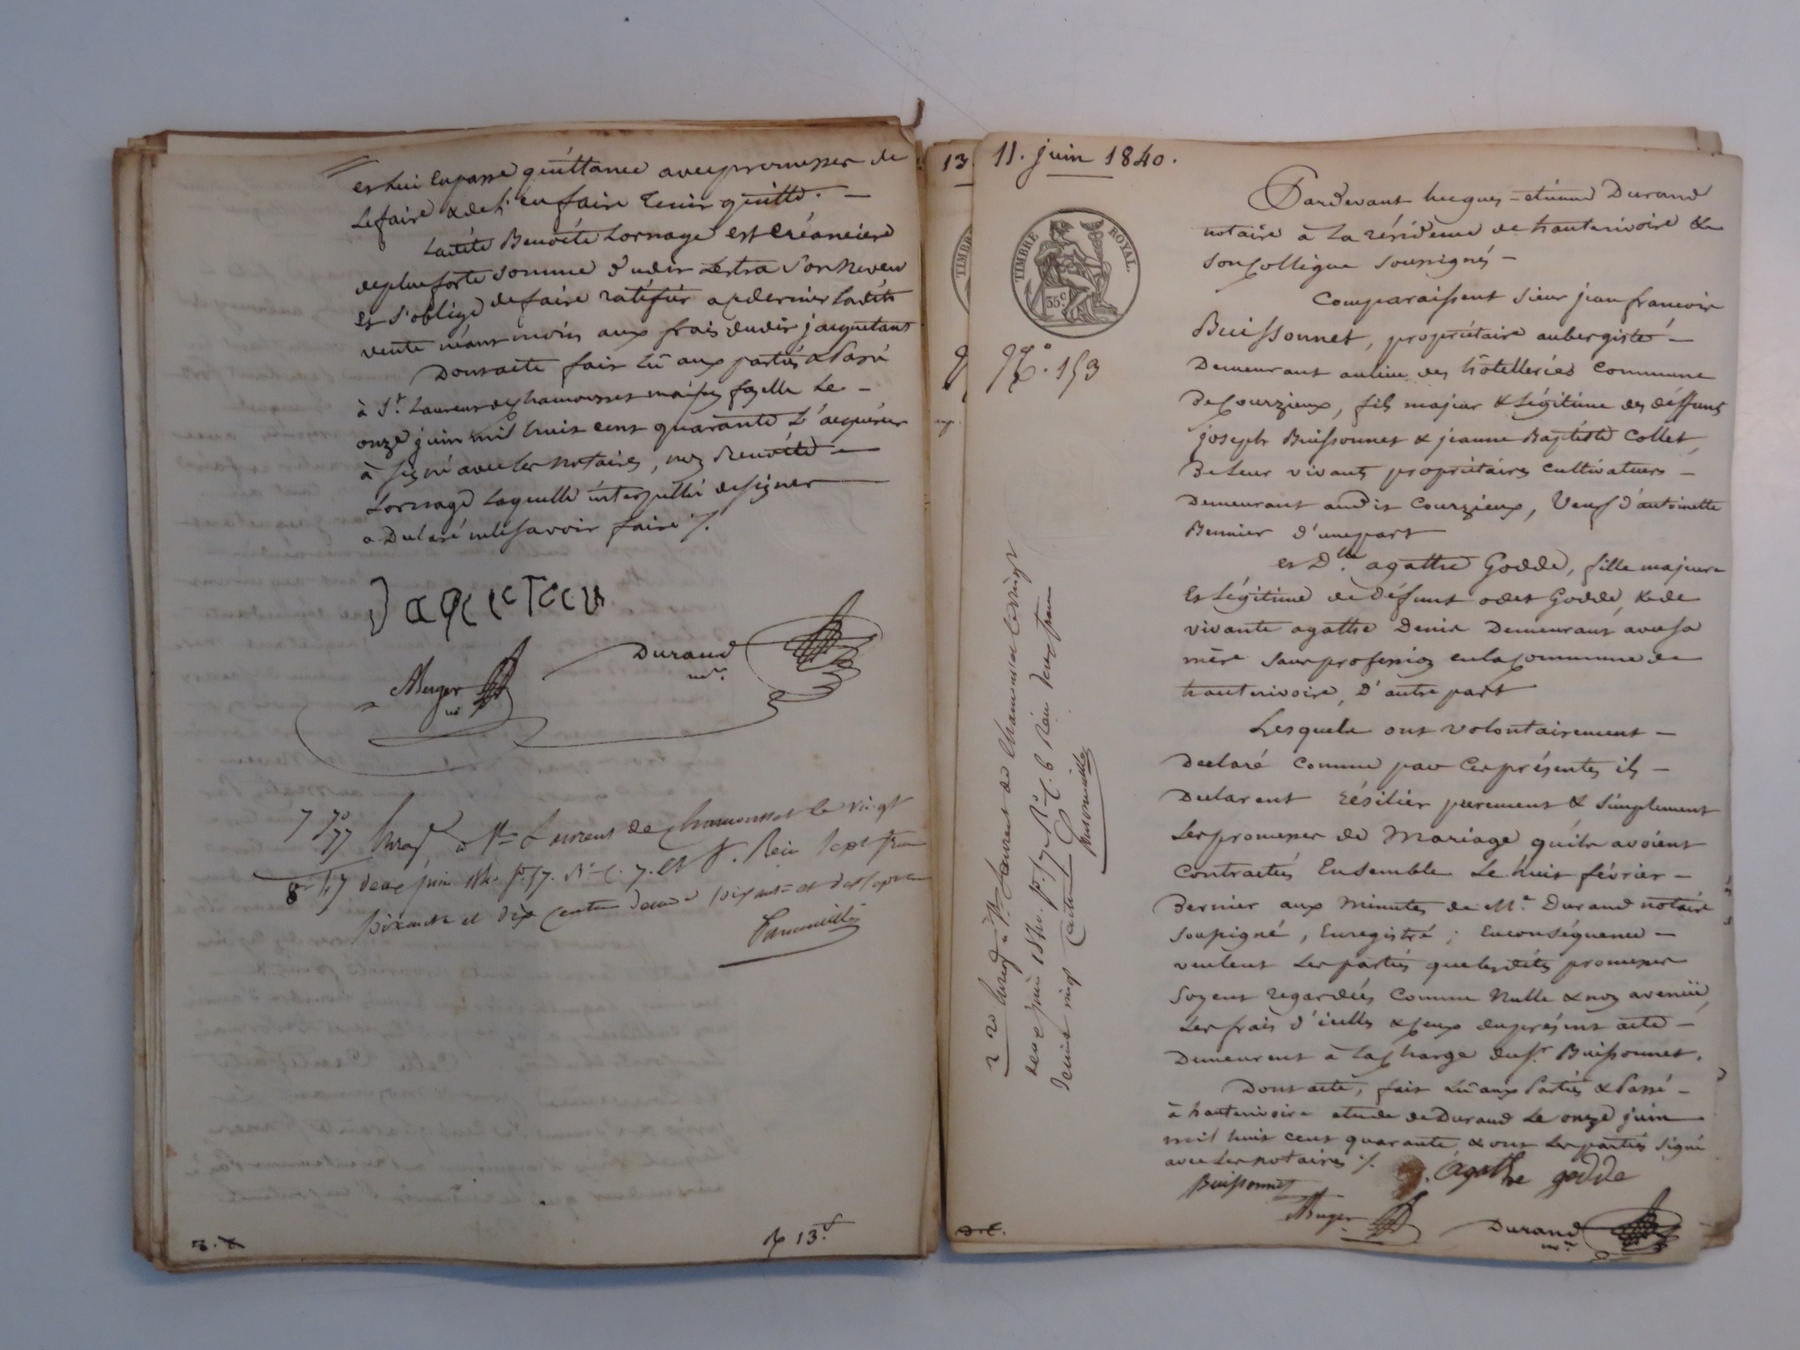 et lui en passe quittance avec promesse de
le faire & de l'en faire tenir quitte. —
Ladite Benoite Lornage est créancière
de plus forte somme dudit Lestra son neveu
et s'oblige de faire ratifier a ce dernier ladite
vente néanmoins aux frais dudit jacquetant
Dont acte fait lu aux parties & Passé
à St. Laurent de chamousset maison fayolle Le —
onze juin mil huit cent quarante, L'acquéreur
à signé avec les notaires, non Benoite —
Lornage laquelle interpellée de signer
a Déclaré ne le savoir faire ./.
Berger
nre
Durand
nre
St Laurent de Chamousset le vingt
deux juin
soixante et dix centimes
3. r.
13.
13.
TIMBRE
11. juin 1840.
TIMBRE ROYAL.
35c
No. 153
Pardevant hugues-etienne Durand
notaire à la résidence de hauterivoire &
son Collègue soussignés —
Comparaissent sieur jean françois
Buissonnet, propriétaire aubergiste —
Demeurant au lieu des hôtelleries Commune
de Courzieux, fils majeur & Légitime des déffunts
joseph Buissonnet & jeanne Baptiste Collet,
De Leur vivant propriétaires Cultivateurs —
Demeurant audit Courzieux, Veuf d'antoinette
d'une part
et Dlle. agathe Godde, fille majeure
Et Légitime de défunt odet Godde, & de
vivante agathe Denis Demeurant avec sa
mère sans profession en la Commune de
hauterivoire, D'autre part
Lesquels ont volontairement —
Déclaré Comme par Ces présentes ils —
Déclarent résilier purement & simplement
Les promesses de Mariage qu'ils avoient
Contractés Ensemble Le huit février —
Dernier aux Minutes de Me. Durand notaire
soussigné, Enregistré; En conséquence —
veulent Les parties que lesdites promesses
soyent regardées Comme Nulle & non avenue,
Les frais d'icelles & Ceux du présent acte —
Demeurent à la Charge du sr. Buissonnet.
Dont acte, fait Lu aux Parties & Passé —
à hauterivoire etude de Durand Le onze juin
mil huit cent quarante, & ont Les parties signé
avec Les notaires ./.
agathe godde
Buissonnet
Berger
Durand
nre
St Laurent de Chamousset le vingt
deux juin 1840.